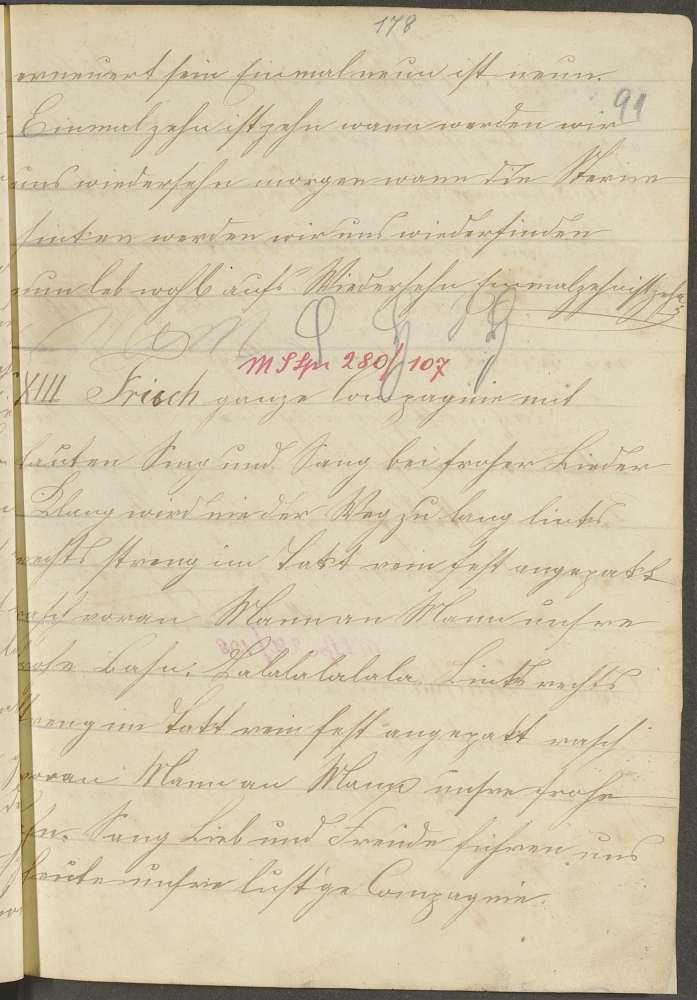 178
erneuert sein Einmalneun ist neun.
91
Einmalzehn ist zehn wann werden wir
uns wiedersehn morgen wann die Sterne
sinken werden wir uns wiederfinden
nun leb wohl auf's Wiedersehn Einmalzehnistzehn.
280/107
XIII Frisch ganze Compagnie mit
lauten Sing und Sang bei froher Lieder
Klang wird nie der Weg zu lang links
rechts streng im Takt rein fest angepakt
rasch voran Mann an Mann unsre
frohe Bahn. Lalalalalala Links rechts
streng im Takt rein fest angepakt rasch
voran Mann an Mann unsre frohe
Sang Lieb und Freude führen uns
heute unsre lust'ge Compagnie.